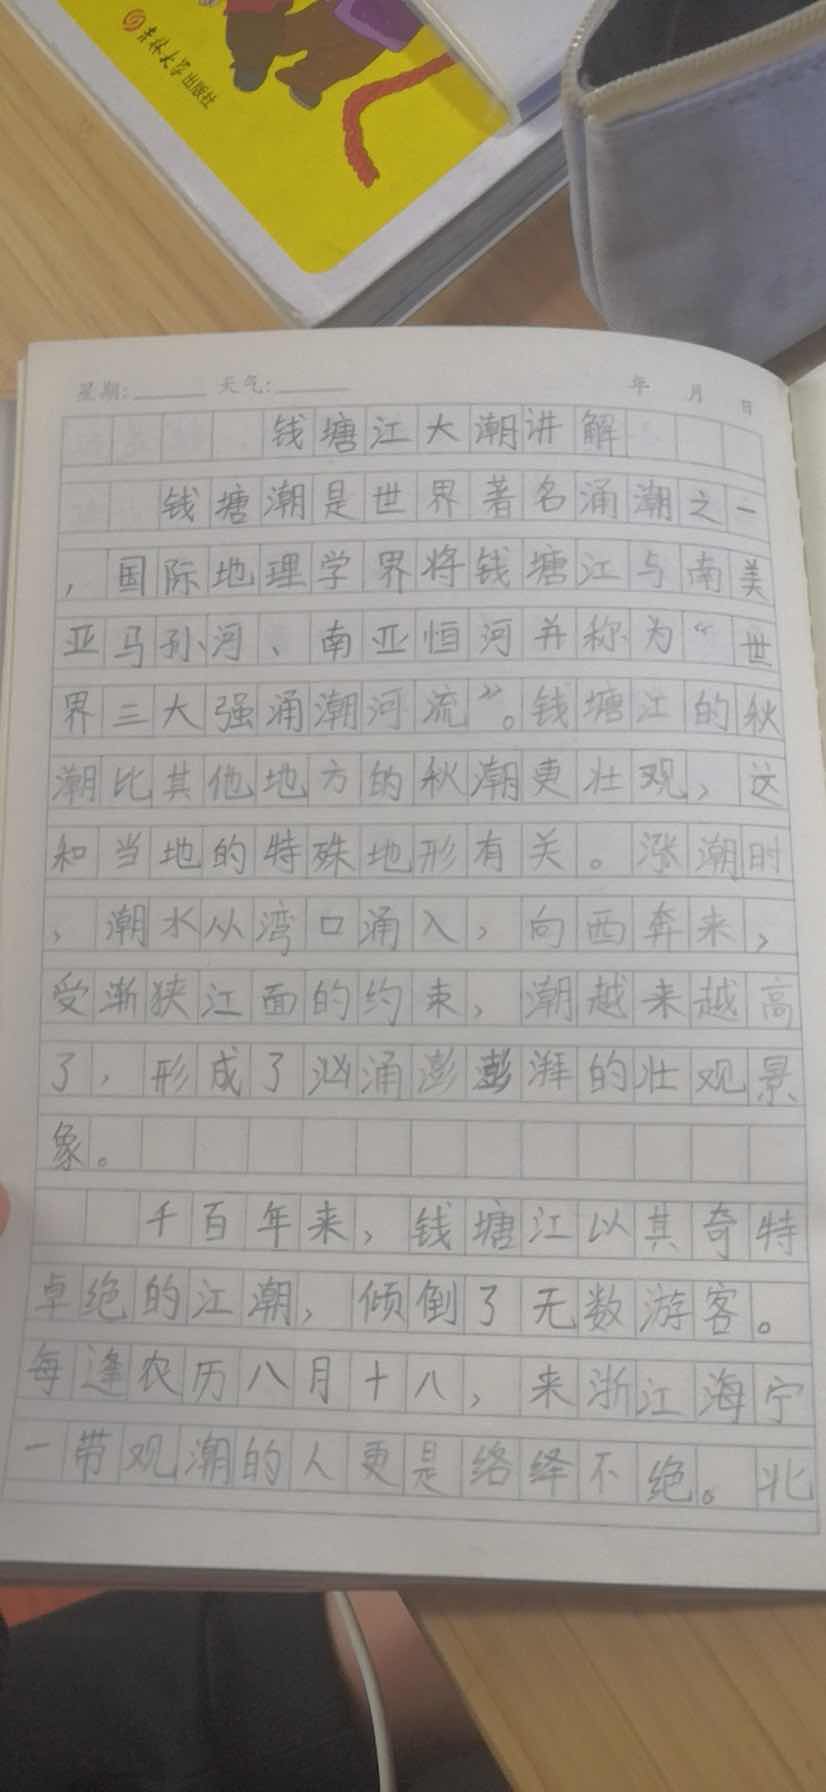 吉林大学出版社
星期: 天气: 年 月 日
钱塘江大潮讲解
钱塘潮是世界著名涌潮之一
，国际地理学界将钱塘江与南美
亚马孙河、南亚恒河并称为“世
界三大强涌潮河流”。钱塘江的秋
潮比其他地方的秋潮更壮观，这
和当地的特殊地形有关。涨潮时
，潮水从湾口涌入，向西奔来，
受渐狭江面的约束，潮越来越高
了，形成了汹涌澎澎湃的壮观景
象。
千百年来，钱塘江以其奇特
卓绝的江潮，倾倒了无数游客。
每逢农历八月十八，来浙江海宁
一带观潮的人更是络绎不绝。北